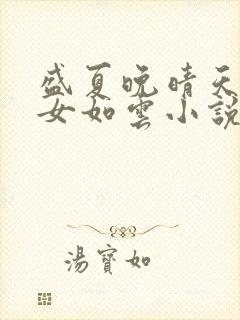 盛夏晚晴天
女如雲小說
湯寶如